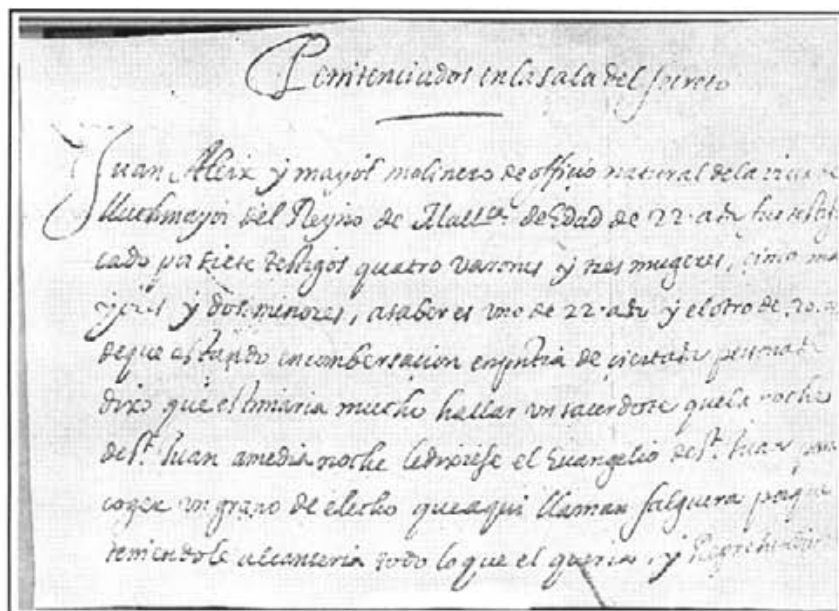 Penitenciados en la sala del secreto
Juan Aleix y mayol molinero de officio natural de la
lluchmayor del Reyno de Mallca. de Edad de 22 a.s fue testifi
cado por siete testigos quatro varones y tres mugeres, cinco ma
yores y dos menores, asaber es uno de 22 a.s y el otro de 20
de que estando en combersacion en de ciertas personas
dixo que estimaria mucho hallar un sacerdote que la noche
de S.t Juan a media noche le dixese el Evangelio de S.t Juan para
coger un grano de elecho que aqui llaman falguera porque
teniendole alcanteria todo lo que el queria, y